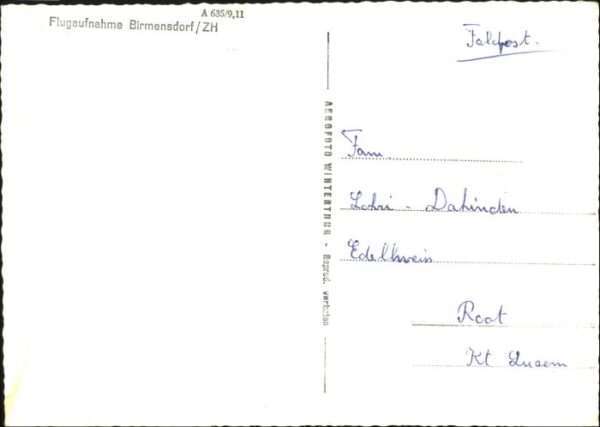 A 635/9,11
Flugaufnahme Birmensdorf/ZH
AEROFOTO WINTERTHUR - Reprod. verboten
Feldpost.
Fam.
Lohri - Dahinden
Edelhweis
Root
Kt Luzern